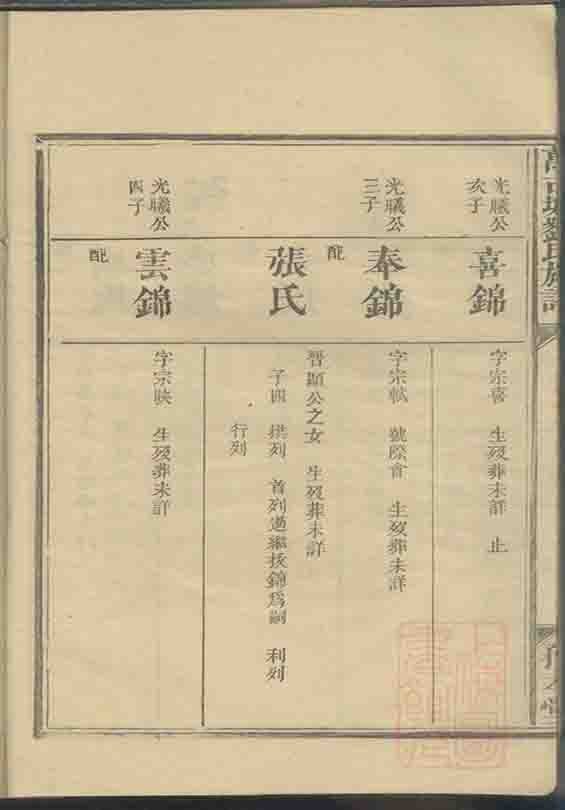 劉氏族譜
光曦公
次子
喜錦
字宗喜 生歿葬未詳 止
光曦公
三子
奉錦
字宗軾 號際會 生歿葬未詳
配
張氏
晉顯公之女 生歿葬未詳
子四 拱列 首列過繼拔錦為嗣 利列
行列
光曦公
四子
雲錦
字宗映 生歿葬未詳
配